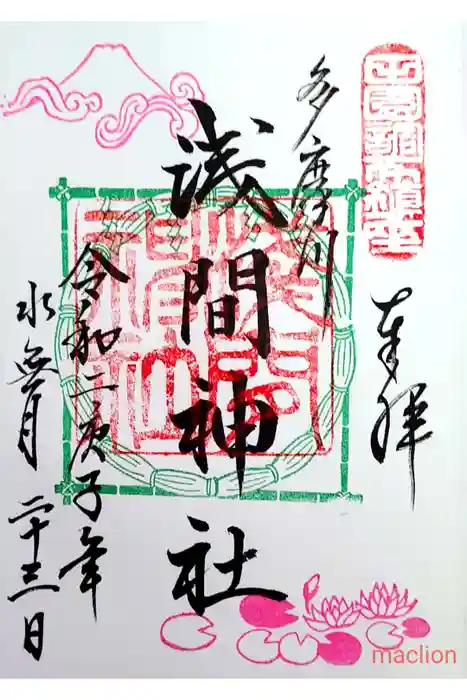 奉拝
多摩川
浅間神社
令和二庚子年
水無月二十三日
maclion